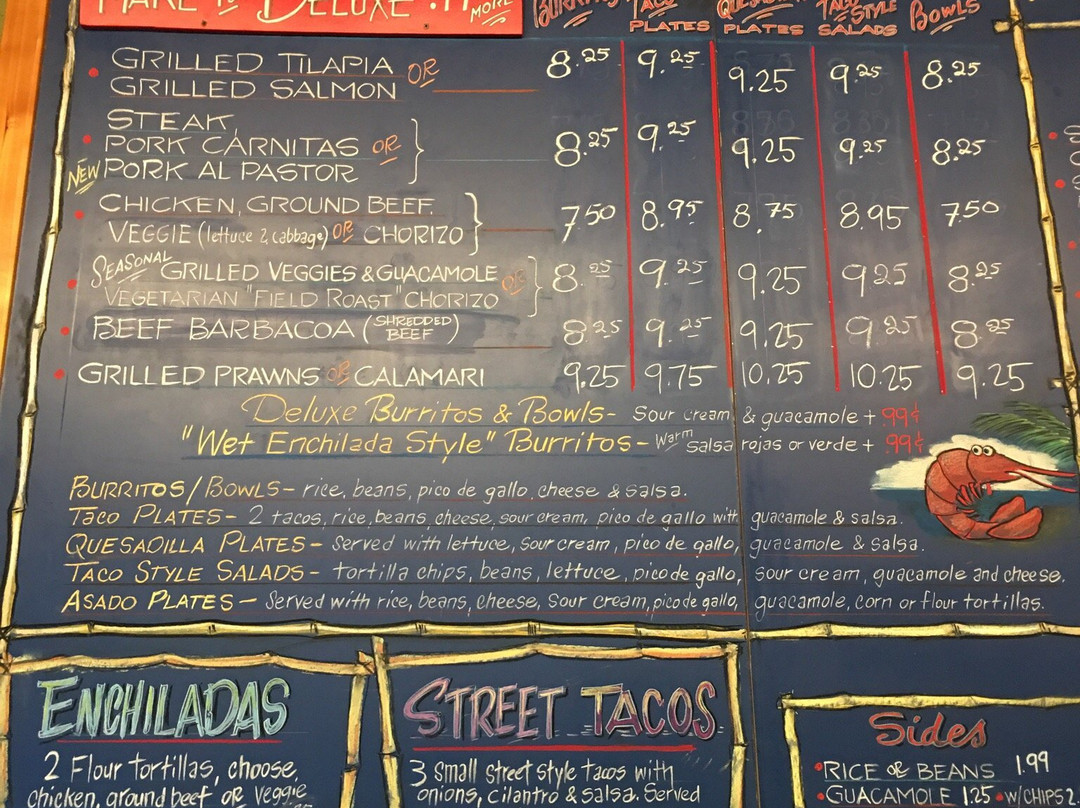 MAKE IT DELUXE!!! MORE
BURRITOS TACO PLATES QUESADILLA PLATES TACO STYLE SALADS BOWLS
GRILLED TILAPIA OR
GRILLED SALMON 8.25 9.25 9.25 9.25 8.25
STEAK,
PORK CARNITAS OR 8.25 9.25 9.25 9.25 8.25
NEW PORK AL PASTOR
CHICKEN, GROUND BEEF. 7.50 8.95 8.75 8.95 7.50
VEGGIE (lettuce & cabbage) OR CHORIZO
SEASONAL GRILLED VEGGIES & GUACAMOLE OR 8.25 9.25 9.25 9.25 8.25
VEGETARIAN "FIELD ROAST" CHORIZO
BEEF BARBACOA (SHREDDED BEEF) 8.25 9.25 9.25 9.25 8.25
GRILLED PRAWNS OR CALAMARI 9.25 9.75 10.25 10.25 9.25
Deluxe Burritos & Bowls- Sour cream & guacamole + .99¢
"Wet Enchilada Style" Burritos - Warm Salsa rojas or verde + .99¢
BURRITOS/BOWLS- rice, beans, pico de gallo, cheese & salsa.
TACO PLATES- 2 tacos, rice, beans, cheese, sour cream, pico de gallo with guacamole & salsa.
QUESADILLA PLATES- Served with lettuce, sour cream, pico de gallo, guacamole & salsa.
TACO STYLE SALADS- tortilla chips, beans, lettuce, pico de gallo, sour cream, guacamole and cheese.
ASADO PLATES- Served with rice, beans, cheese, sour cream, pico de gallo, guacamole, corn or flour tortillas.
ENCHILADAS
2 Flour tortillas, choose,
chicken, ground beef or veggie
STREET TACOS
3 Small street style tacos with
onions, cilantro & salsa. Served
Sides
RICE OR BEANS 1.99
GUACAMOLE 1.25 • W/CHIPS 2